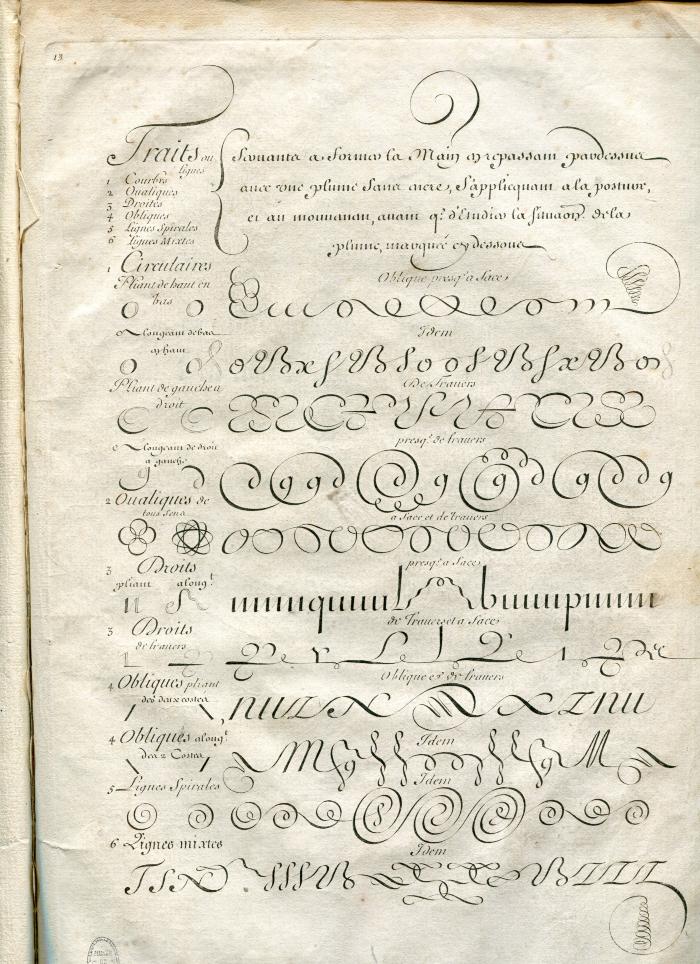 13
Traits ou
Lignes
1 Courbes
2 Oualiques
3 Droites
4 Obliques
5 Lignes Spirales
6 Lignes Mixtes
Seruants a former la Main en repassant pardessus
auec vne plume sans ancre, S'applicquant a la posture,
et au mouuement, auant qe. d'Etudier la situaon. de la
plume, marquée cy dessous
1 Circulaires
Pliant de haut en
bas
Oblique presqe. a face
Alongeant de bas
en haut
Idem
Pliant de gauche a
droit
De Trauers
Alongeant de droit
a gauche
presqe. de trauers
2 Oualiques de
tous sens
a face et de trauers
3 Droits
pliant alongt.
presqe. a face
3 Droits
de trauers
de Trauers et a face
4 Obliques pliant
des deux costez
Oblique et de trauers
4 Obliques alongt.
des 2 Costez
Idem
5 Lignes Spirales
Idem
6 Lignes mixtes
Idem